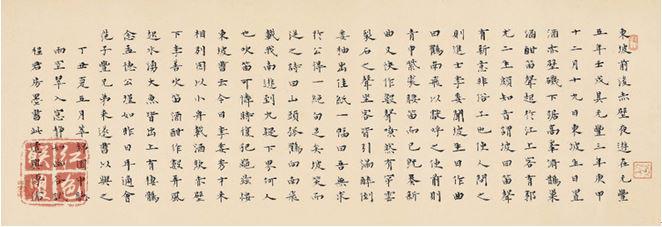 東坡前後赤壁夜遊在元豐
五年壬戌其元豐三年庚申
十二月十九日東坡生日置
酒赤壁磯下踞高峯鵲巢
酒酣笛聲起於江上客有郭
尤二生頗知音謂坡曰笛聲
有新意非俗工也使人問之
則進士李委聞坡生日作曲
曰鶴南飛以獻呼之使前則
青巾紫裘腰笛而已既奏新
曲又快作數聲嘹然有穿雲
裂石之聲坐客皆引滿醉倒
委袖出佳紙一幅曰吾無求
於公得一絕句足矣坡笑而
從之詩曰山頭孤鶴向南飛
載我南遊到九疑下界何人
也吹笛可憐時復犯龜茲
東坡嘗云今日李委秀才來
相別因以小舟載酒飲赤壁
下李善吹笛酒酣作數弄風
起水涌大魚皆出上有棲鶻
念孟德公瑾如昨日耳適會
范子豐兄弟來遂書以與之
丁丑夏五月
雨翠入窓靜
程君房墨書此